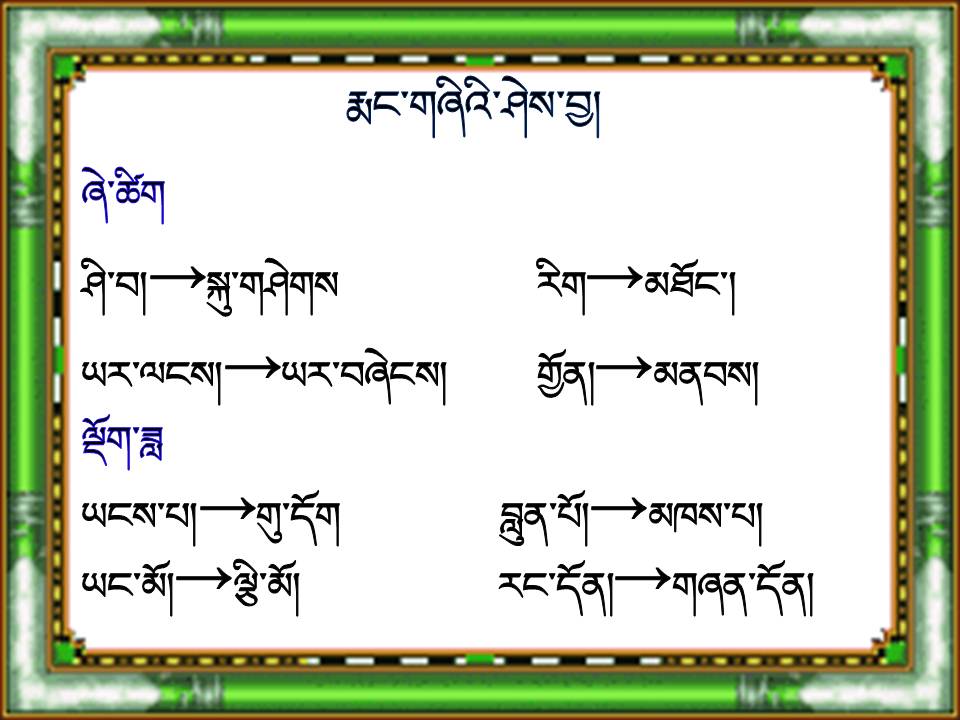 རྨང་གཞིའི་ཤེས་བྱ།
ཞེ་ཚིག
ཤི་བ།→སྐུ་གཤེགས རིག→མཐོང་།
ཡར་ལངས།→ཡར་བཞེངས། གྱོན།→མནབས།
ལྡོག་ཟླ
ཡངས་པ།→གུ་དོག བླུན་པོ།→མཁས་པ།
ཡང་མོ།→ལྕི་མོ། རང་དོན།→གཞན་དོན།